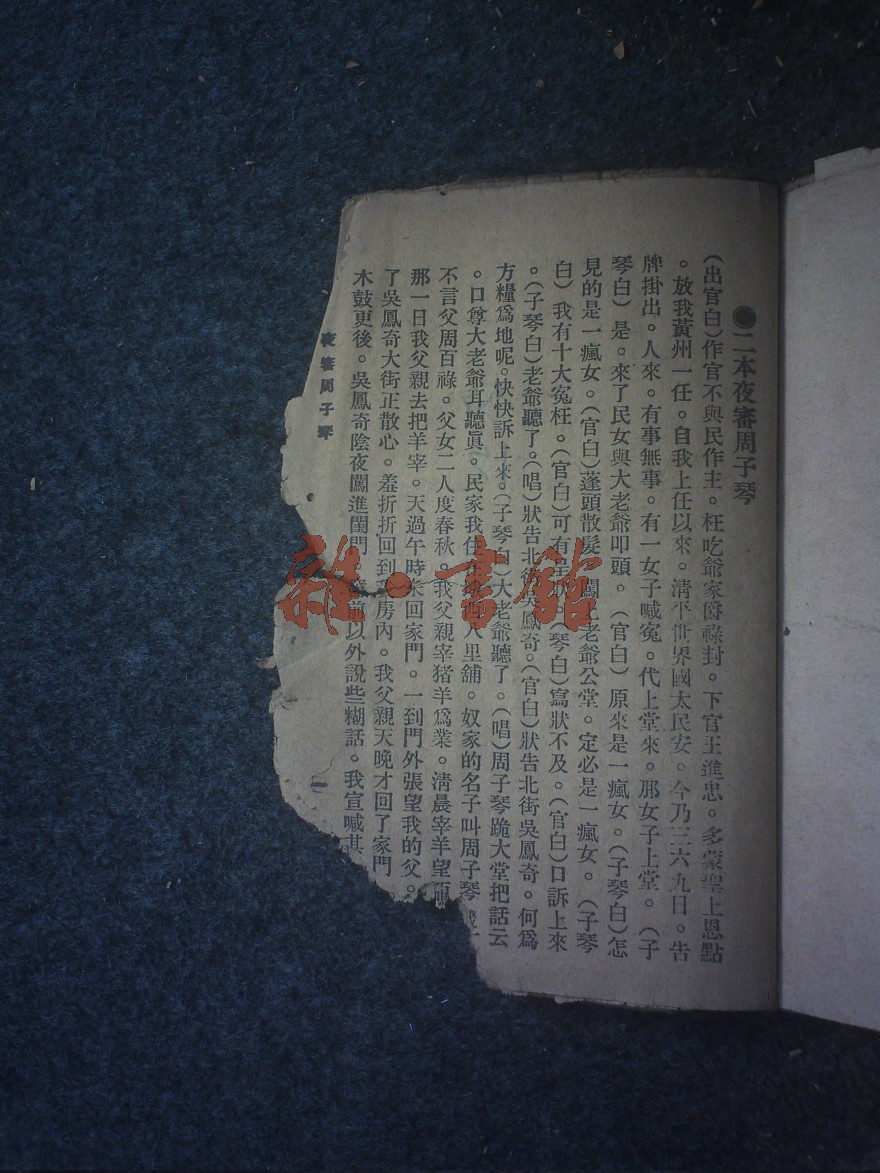 ●二本夜審周子琴
(出官白)作官不與民作主。枉吃爺家爵祿封。下官王進忠。多蒙聖上恩點
。放我黃州一任。自我上任以來。清平世界國太民安。今乃三六九日。告
牌掛出。人來。有事無事。有一女子喊冤。代上堂來。那女子上堂。(子
琴白)是。來了民女與大老爺叩頭。(官白)原來是一瘋女。(子琴白)怎
見的是一瘋女。(官白)蓬頭散髮。闖上老爺公堂。定必是一瘋女。(子琴
白)我有十大冤枉。(官白)可有呈狀。(琴白)寫狀不及。(官白)口訴上來
。(子琴白)老爺聽了。(唱)狀告北街吳鳳奇。(官白)狀告北街吳鳳奇。何爲
方糧爲地呢。快快訴上來。(子琴白)大老爺聽了。(唱)周子琴跪大堂把話云
。口尊大老爺耳聽眞。民家我住 西八里舖。奴家的名子叫周子琴
不言父周百祿。父女二人度春秋。我父親宰猪羊爲業。清晨宰羊望
那一日我父親去把羊宰。天過午時未回家門。一到門外張望我的父。
了吳鳳奇大街正散心。羞折折回到 房內。我父親天晚才回了家門
木鼓更後。吳鳳奇陰夜闖進閨門 前以外說些糊話。我宣喊其
夜審周子琴
一
雜·書館